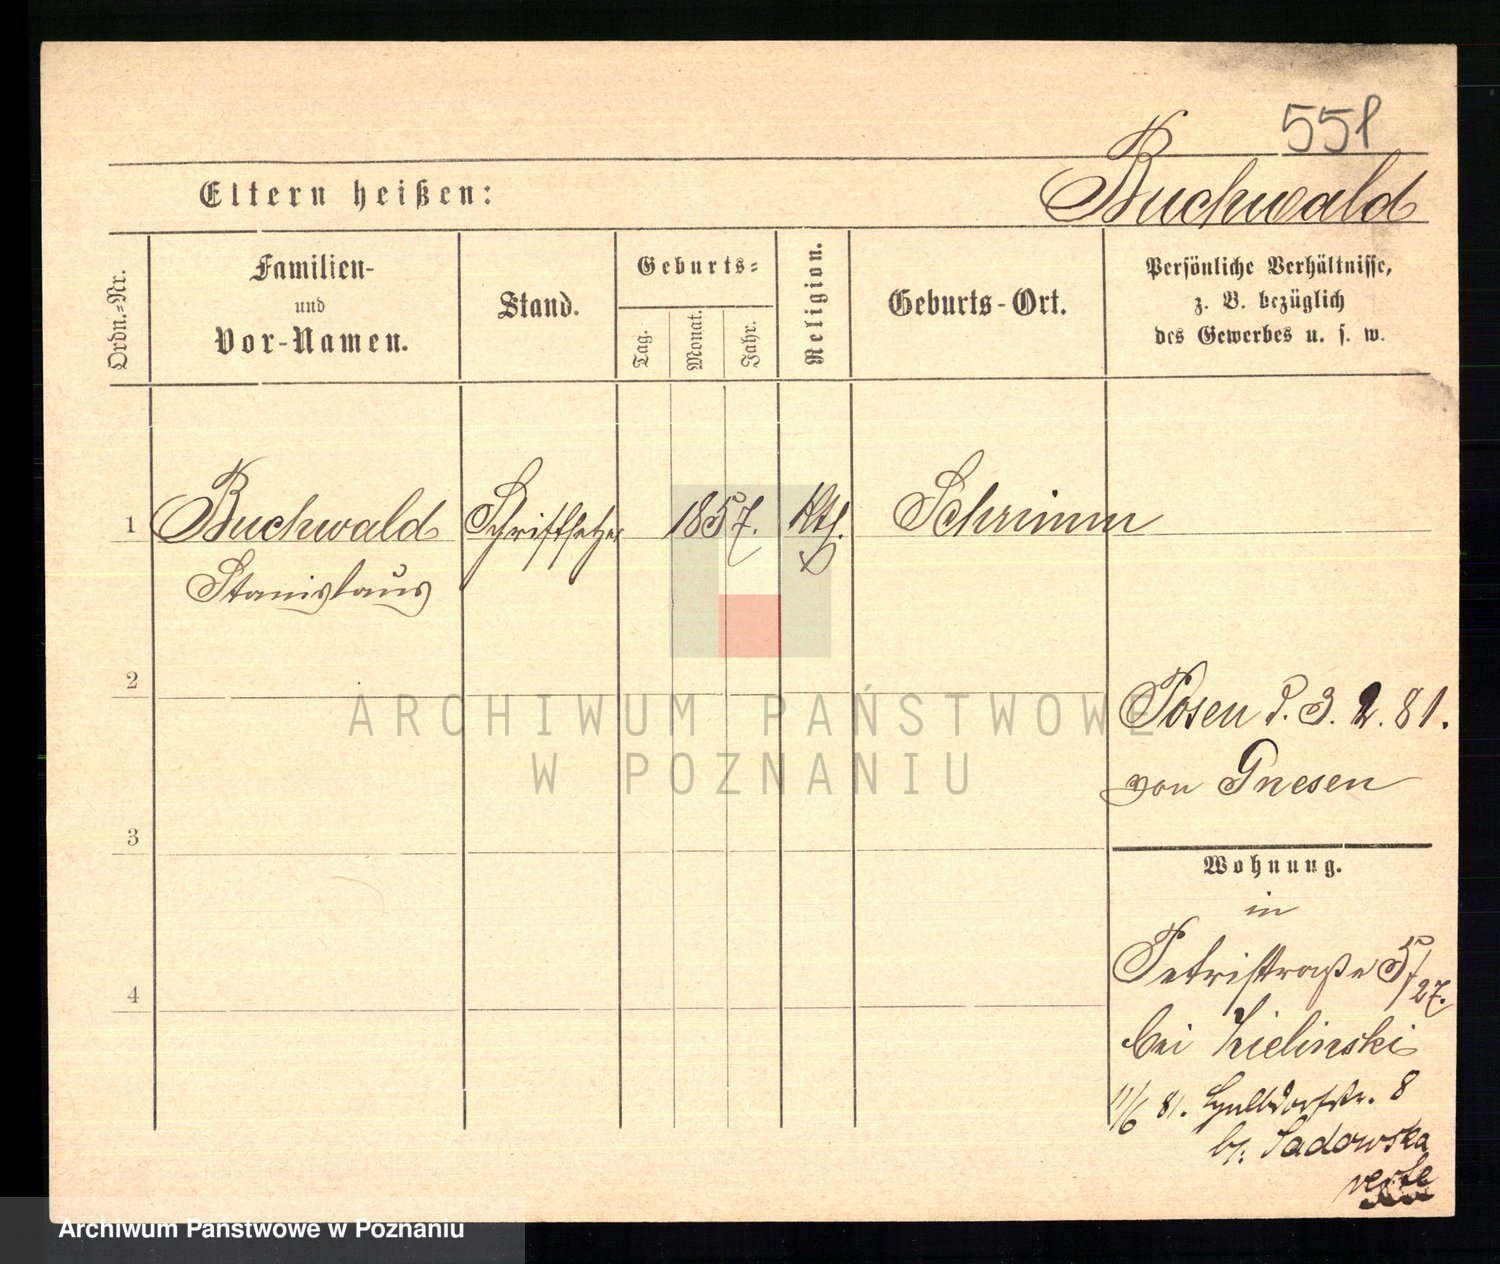 551
Buchwald
Eltern heißen:
Ordn.-Nr.
Familien-
und
Vor-Namen.
Stand.
Geburts-
Tag.
Monat.
Jahr.
Religion.
Geburts-Ort.
Persönliche Verhältnisse,
z. B. bezüglich
des Gewerbes u. s. w.
1 Buchwald Schriftsetzer 1857. Kth. Schrimm
Stanislaus
2
Posen d. 3. 2. 81.
von Gnesen
3
Wohnung.
in
Petristraße 5/27.
4
bei Zielinski
11/6 81. 8
b/: Sadowska
ARCHIWUM PAŃSTWOWE
W POZNANIU
Archiwum Państwowe w Poznaniu